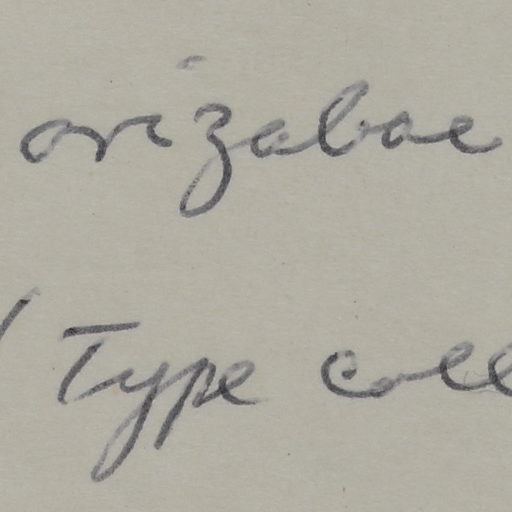 orizabae
(Type coll